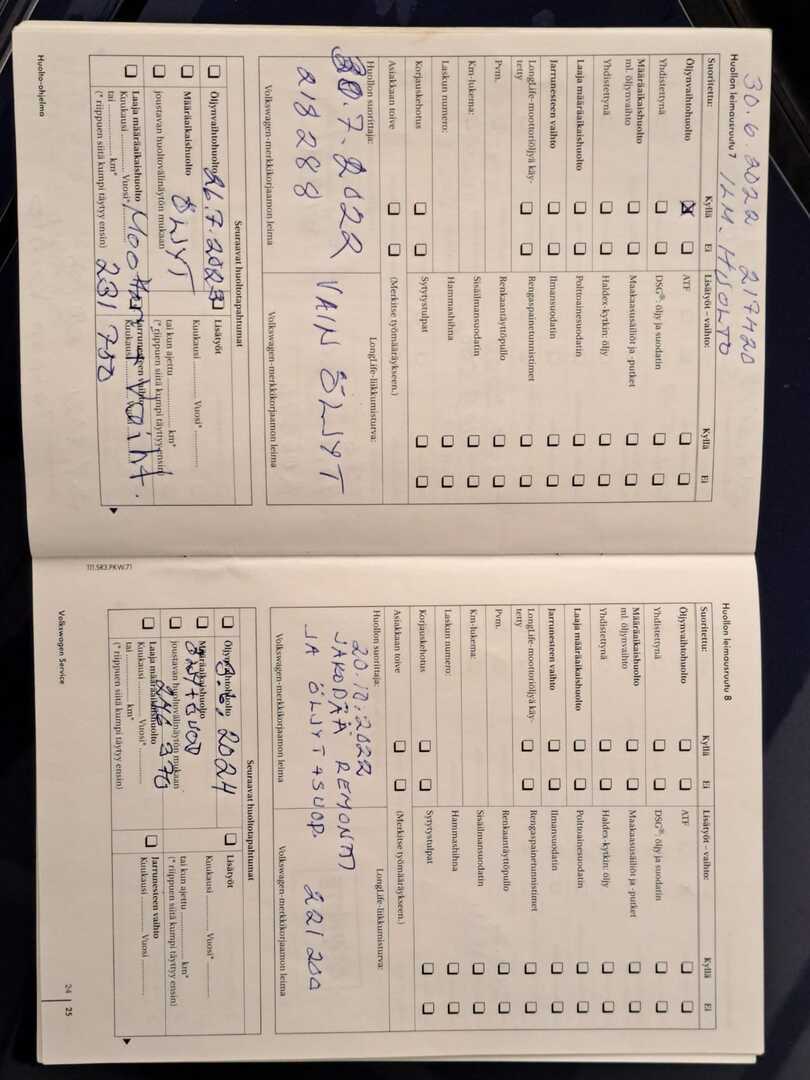 30.6.2022 217420
Huollon leimausruutu 7
ILM. HUOLTO
Suoritettu: Kyllä Ei Lisätyöt – vaihto: Kyllä Ei
Öljynvaihtohuolto ATF
Yhdistettynä DSG®: öljy ja suodatin
Määräaikaishuolto
ml. öljynvaihto
Maakaasusäiliöt ja -putket
Yhdistettynä Haldex-kytkin: öljy
Laaja määräaikaishuolto Polttoainesuodatin
Jarrunesteen vaihto Ilmansuodatin
LongLife-moottoriöljyä käy-
tetty
Rengaspainetunnistimet
Pvm. Renkaantäyttöpullo
Km-lukema: Sisäilmansuodatin
Laskun numero: Hammashihna
Korjauskehotus Sytytystulpat
Asiakkaan toive (Merkitse työmääräykseen.)
Huollon suorittaja: LongLife-liikkumisturva:
30.7.2022 VAIN ÖLJYT
218288
Volkswagen-merkkikorjaamon leima Volkswagen-merkkikorjaamon leima
Seuraavat huoltotapahtumat
Öljynvaihtohuolto Lisätyöt
26.7.2023
Kuukausi Vuosi*
Määräaikaishuolto
ÖLJYT
joustavan huoltovälinäytön mukaan
tai kun ajettu km*
(* riippuen siitä kumpi täyttyy ensin)
Laaja määräaikaishuolto Jarrunesteen vaihto
Kuukausi Vuosi* Kuukausi Vuosi
tai km*
231750
(* riippuen siitä kumpi täyttyy ensin)
Huolto-ohjelma
111.5R3.PKW.71
Huollon leimausruutu 8
Suoritettu: Kyllä Ei Lisätyöt – vaihto: Kyllä Ei
Öljynvaihtohuolto ATF
Yhdistettynä DSG®: öljy ja suodatin
Määräaikaishuolto
ml. öljynvaihto
Maakaasusäiliöt ja -putket
Yhdistettynä Haldex-kytkin: öljy
Laaja määräaikaishuolto Polttoainesuodatin
Jarrunesteen vaihto Ilmansuodatin
LongLife-moottoriöljyä käy-
tetty
Rengaspainetunnistimet
Pvm. Renkaantäyttöpullo
Km-lukema: Sisäilmansuodatin
Laskun numero: Hammashihna
Korjauskehotus Sytytystulpat
Asiakkaan toive (Merkitse työmääräykseen.)
Huollon suorittaja: LongLife-liikkumisturva:
20.12.2022
JAKOPÄÄ REMONTTI
JA ÖLJYT + SUOD. 221200
Volkswagen-merkkikorjaamon leima Volkswagen-merkkikorjaamon leima
Seuraavat huoltotapahtumat
Öljynvaihtohuolto Lisätyöt
2024
Kuukausi Vuosi*
Määräaikaishuolto
joustavan huoltovälinäytön mukaan
tai kun ajettu km*
(* riippuen siitä kumpi täyttyy ensin)
246 370
Laaja määräaikaishuolto Jarrunesteen vaihto
Kuukausi Vuosi* Kuukausi Vuosi
tai km*
(* riippuen siitä kumpi täyttyy ensin)
Volkswagen Service
24 25